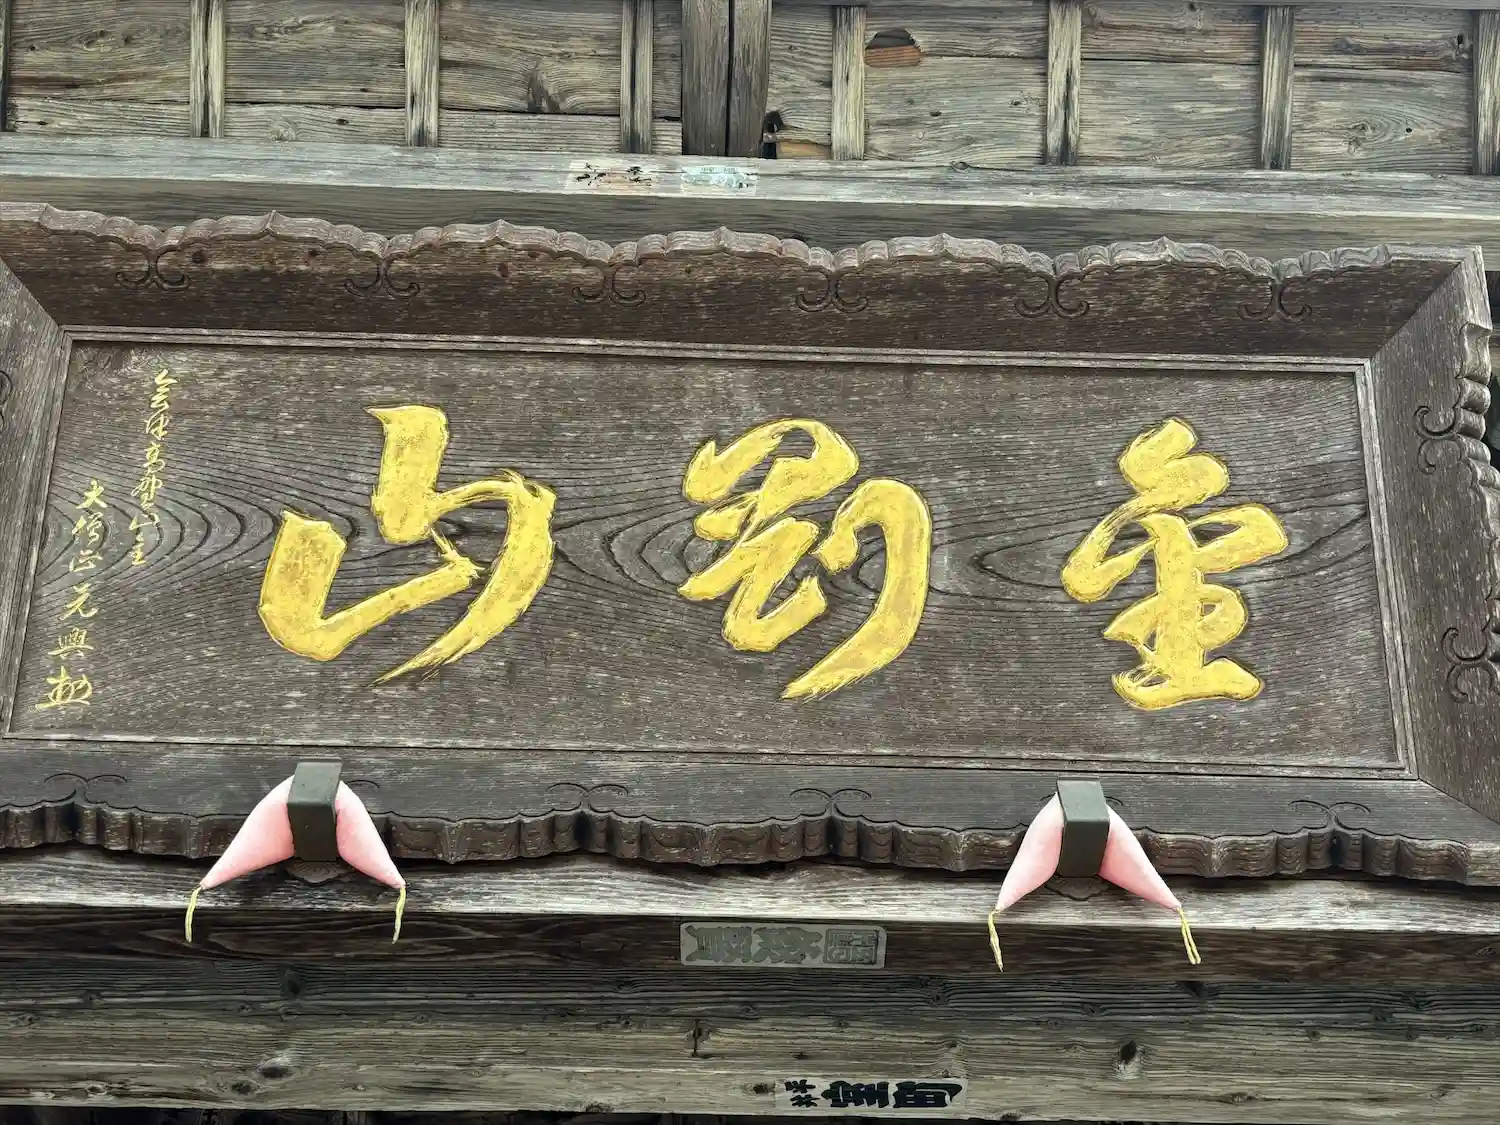 金剛山
会津高野山主
大僧正元興